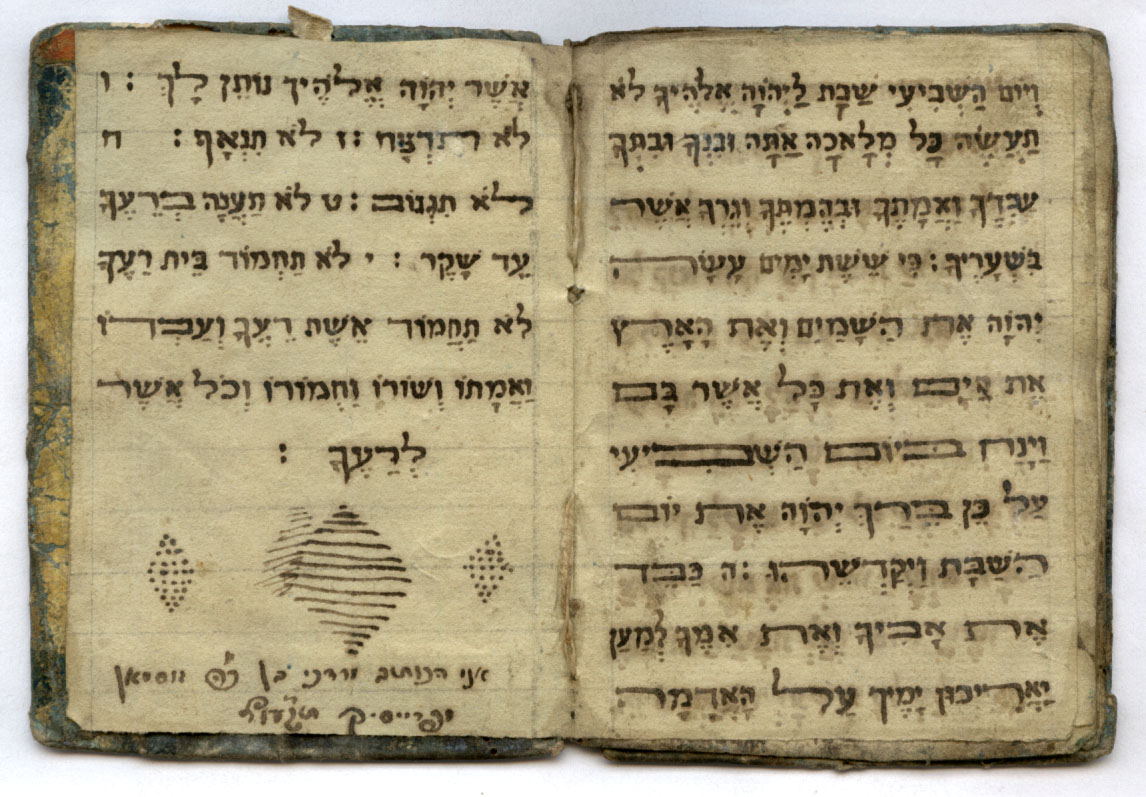 וְיוֹם הַשְּׁבִיעִי שַׁבָּת לַיְהוָֹה אֱלֹהֶיךָ לֹא
תַעֲשֶׂה כָּל מְלָאכָה אַתָּה וּבִנְךָ וּבִתְּךָ
עַבְדְּךָ וַאֲמָתְךָ וּבְהֶמְתֶּךָ וְגֵרְךָ אֲשֶׁר
בִּשְׁעָרֶיךָ : כִּי שֵׁשֶׁת יָמִים עָשָׂה
יְהוָֹה אֶת הַשָּׁמַיִם וְאֶת הָאָרֶץ
אֶת הַיָּם וְאֶת כָּל אֲשֶׁר בָּם
וַיָּנַח בַּיּוֹם הַשְּׁבִיעִי
עַל כֵּן בֵּרַךְ יְהוָֹה אֶת יוֹם
הַשַּׁבָּת וַיְקַדְּשֵׁהוּ : ה כַּבֵּד
אֶת אָבִיךָ וְאֶת אִמֶּךָ לְמַעַן
יַאֲרִיכוּן יָמֶיךָ עַל הָאֲדָמָה
אֲשֶׁר יְהוָֹה אֱלֹהֶיךָ נוֹתֵן לָךְ : ו
לֹא תִרְצָח : ז לֹא תִנְאָף : ח
לֹא תִגְנוֹב : ט לֹא תַעֲנֶה בְרֵעֲךָ
עֵד שָׁקֶר : י לֹא תַחְמוֹד בֵּית רֵעֶךָ
לֹא תַחֲמוֹד אֵשֶׁת רֵעֶךָ וְעַבְדּוֹ
וַאֲמָתוֹ וְשׁוֹרוֹ וַחֲמוֹרוֹ וְכֹל אֲשֶׁר
לְרֵעֶךָ :
אני הכותב בן